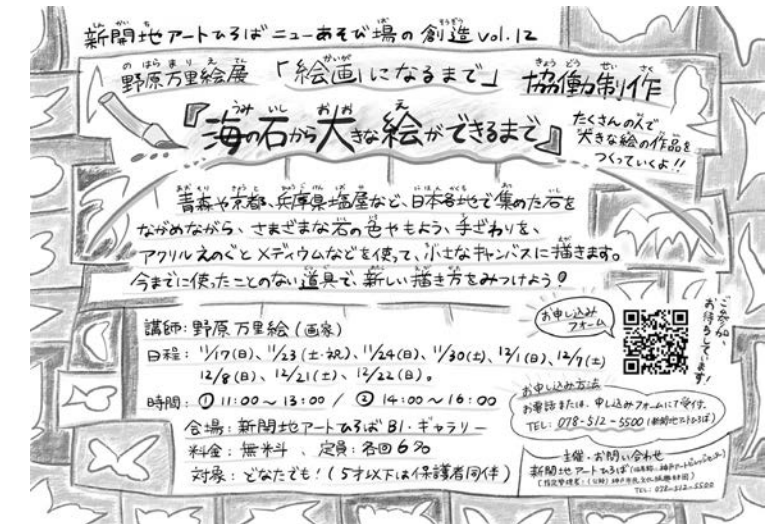 新開地アートひろばニューあそび場の創造 vol.12
野原万里絵展 「絵画」になるまで」 協働制作
『海の石から大きな絵ができるまで』
たくさんの人で
大きな絵の作品を
つくっていくよ!!
青森や京都、兵庫県塩屋など、日本各地で集めた石を
ながめながら、さまざまな石の色やもよう、手ざわりを、
アクリルえのぐとメディウムなどを使って、小さなキャンバスに描きます。
今までに使ったことのない道具で、新しい描き方をみつけよう!
講師: 野原万里絵 (画家)
日程: 11/17(日)、11/23(土・祝)、11/24(日)、11/30(土)、12/1(日)、12/7(土)
12/8(日)、12/21(土)、12/22(日)。
時間: ① 11:00〜13:00 / ② 14:00〜16:00
会場: 新開地アートひろば B1・ギャラリー
料金: 無料 、定員: 各回6名
対象: どなたでも! (5才以下は保護者同伴)
お申し込み
フォーム
ご参加、
お待ちしています!
お申し込み方法
お電話または、申し込みフォームにて受付。
TEL: 078-512-5500 (新開地アートひろば)
主催・お問い合わせ
新開地アートひろば (旧名称: 神戸アートビレッジセンター)
(指定管理者: (公財) 神戸市民文化振興財団)
TEL: 078-512-5500